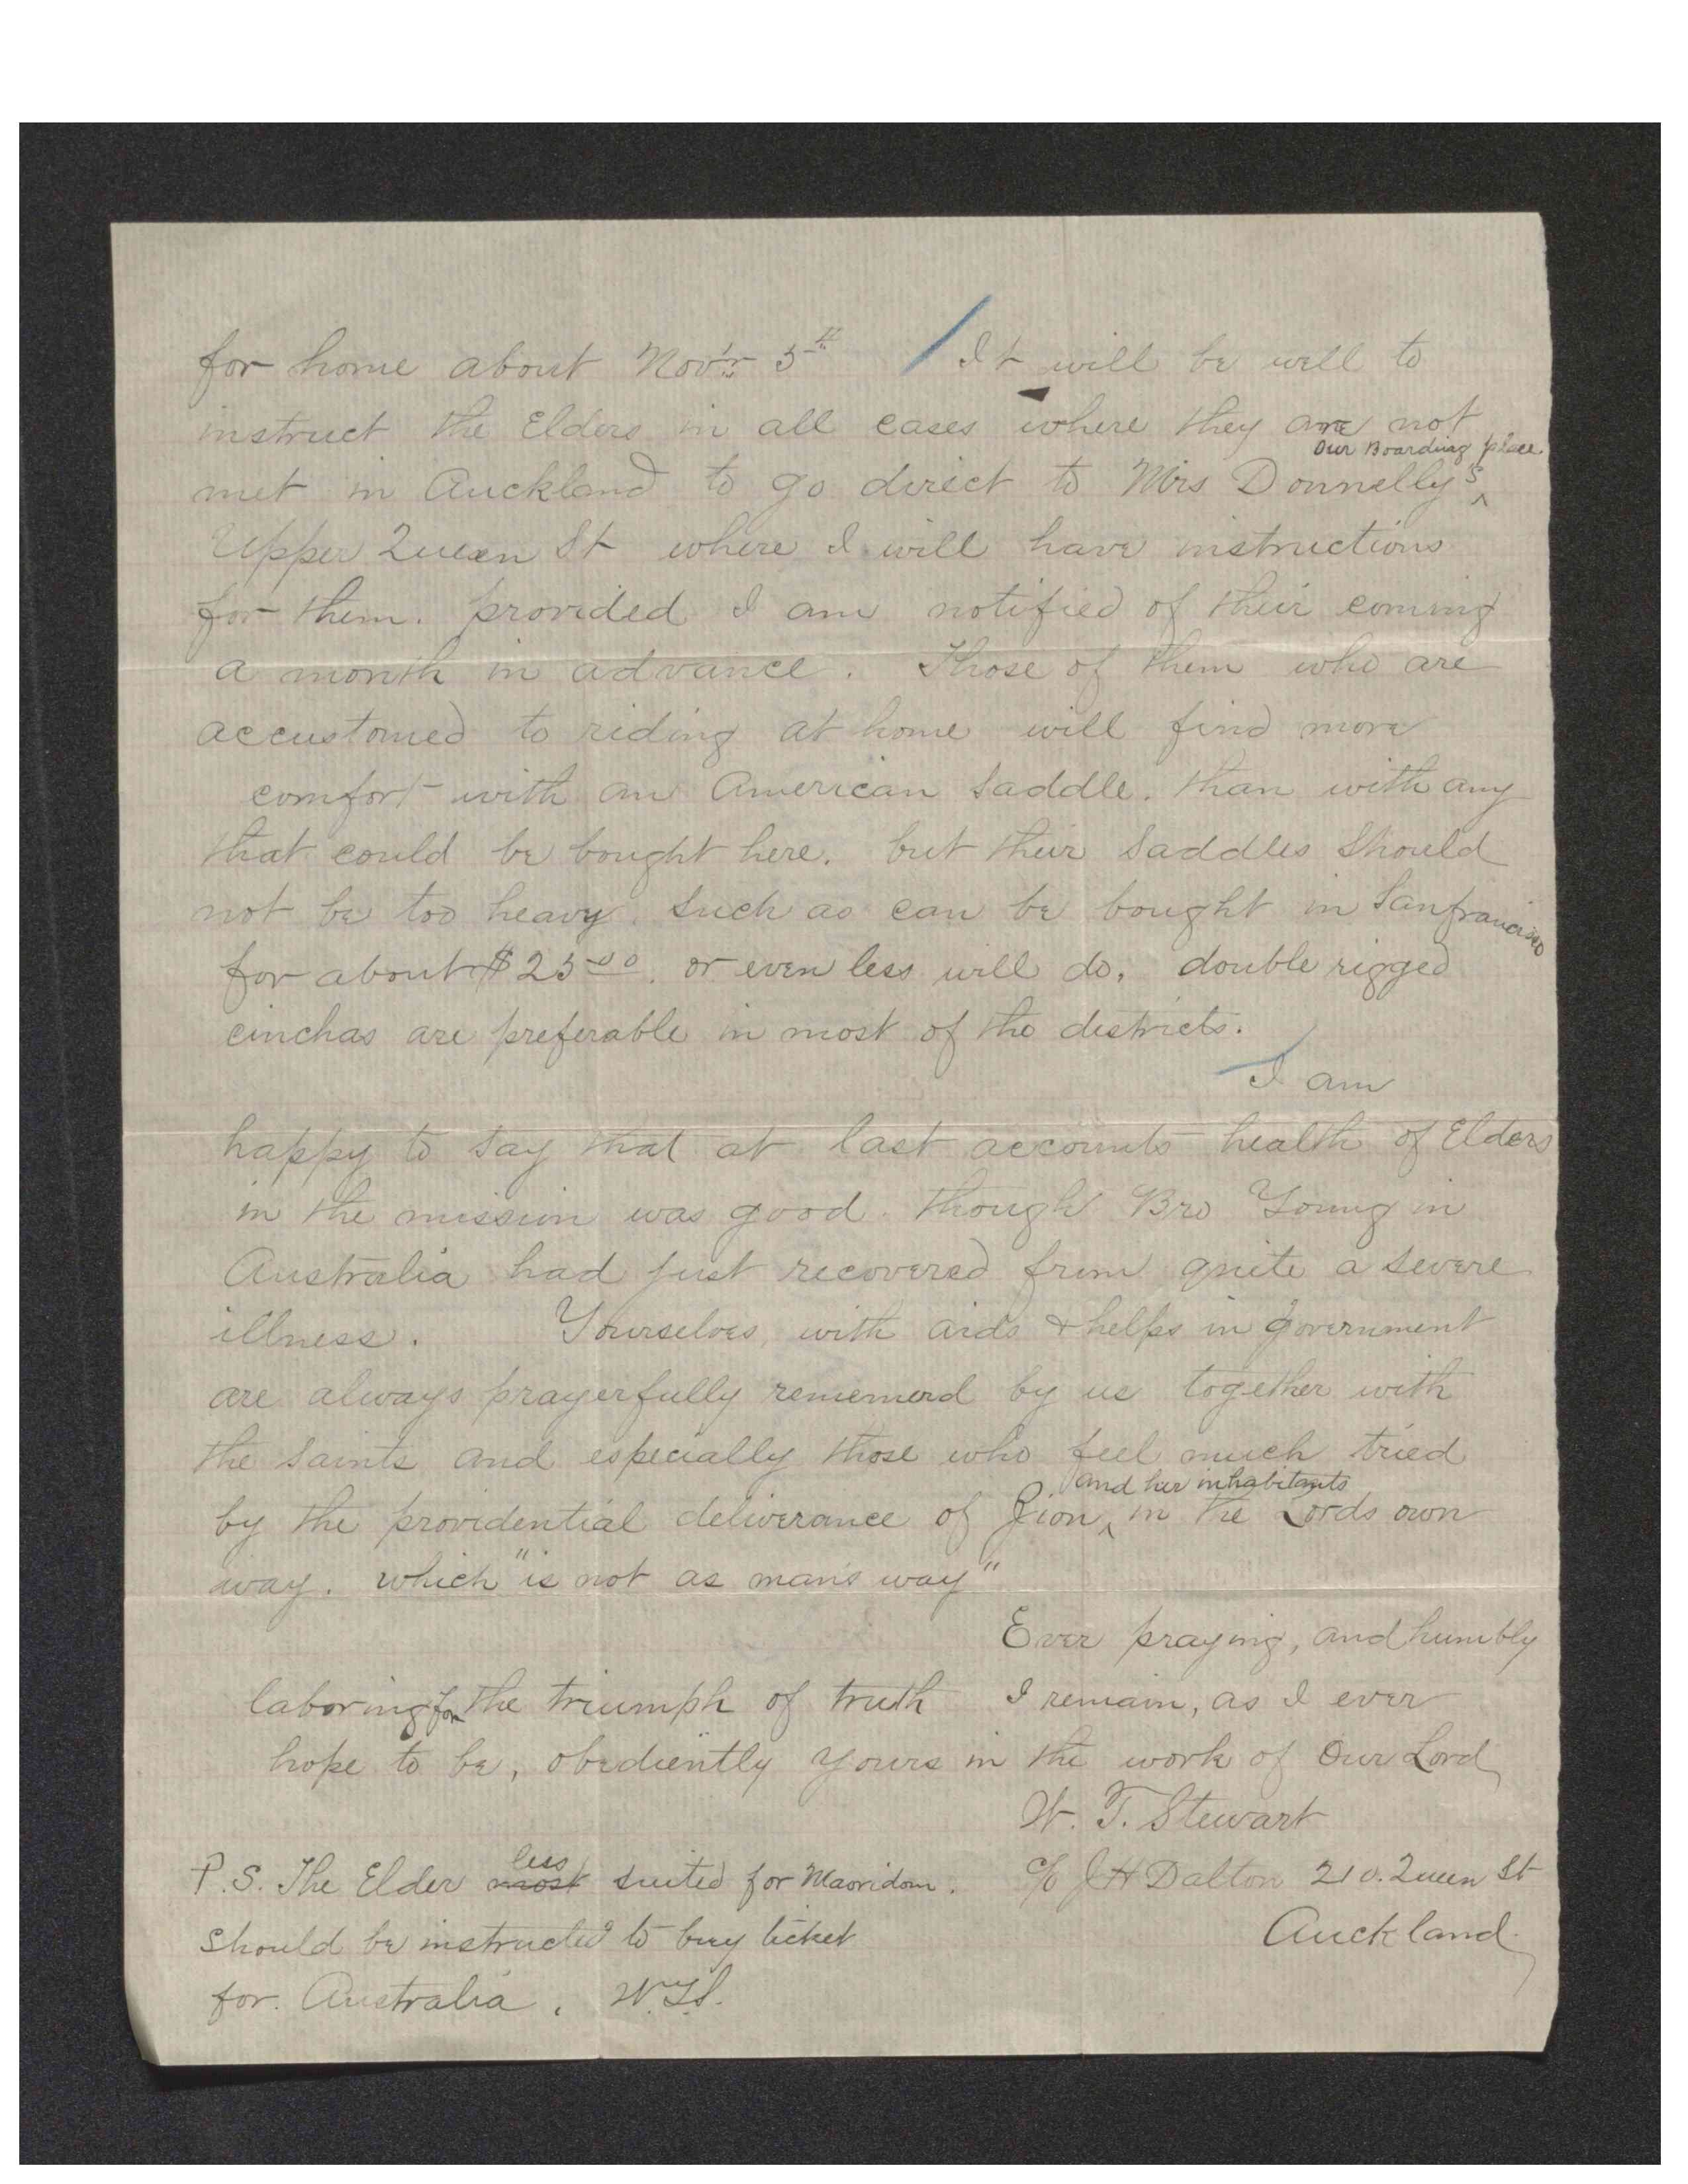 for home about Nov'r 5th It will be well to
instruct the Elders in all cases where they are not
Our Boarding place
met in Auckland to go direct to Mrs Donnelly's ^
Upper Queen St where I will have instructions
for them. provided I am notified of their coming
a month in advance. Those of them who are
accustomed to riding at home will find more
comfort with an American Saddle. than with any
that could be bought here. but their Saddles Should
not be too heavy. Such as can be bought in Sanfrancisco
for about $25 00. or even less will do. double rigged
cinchas are preferable in most of the districts.
I am
happy to say that at last accounts health of Elders
in the mission was good. though Bro Young in
Australia had just recovered from quite a severe
illness. Yourselves, with aids & helps in government
are always prayerfully rememerd by us together with
the Saints and especially those who feel much tried
and her inhabitants
by the providential deliverance of Zion ^ in the Lords own
way. which "is not as man's way"
Ever praying, and humbly
laboring for the triumph of truth I remain, as I ever
hope to be, obediently yours in the work of Our Lord
W. T. Stewart
less
P.S. The Elder most suited for Maoridom. c/o J H Dalton 210. Queen St
Should be instructed to buy ticket Auckland.
for. Australia. W.T.S.